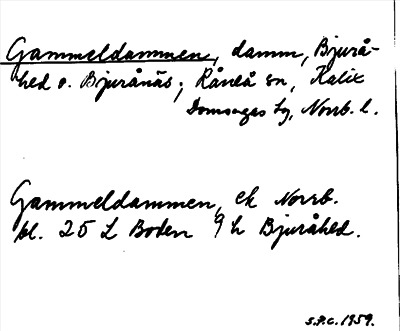 Gammeldammen, damm, Bjurå-
hed o. Bjurånäs; Råneå sn, Kalix
Domsagas tg, Norrb. l.
Gammeldammen, ek Norrb.
bl. 25 L Boden 9 h Bjuråhed.
S.P.C. 1959.